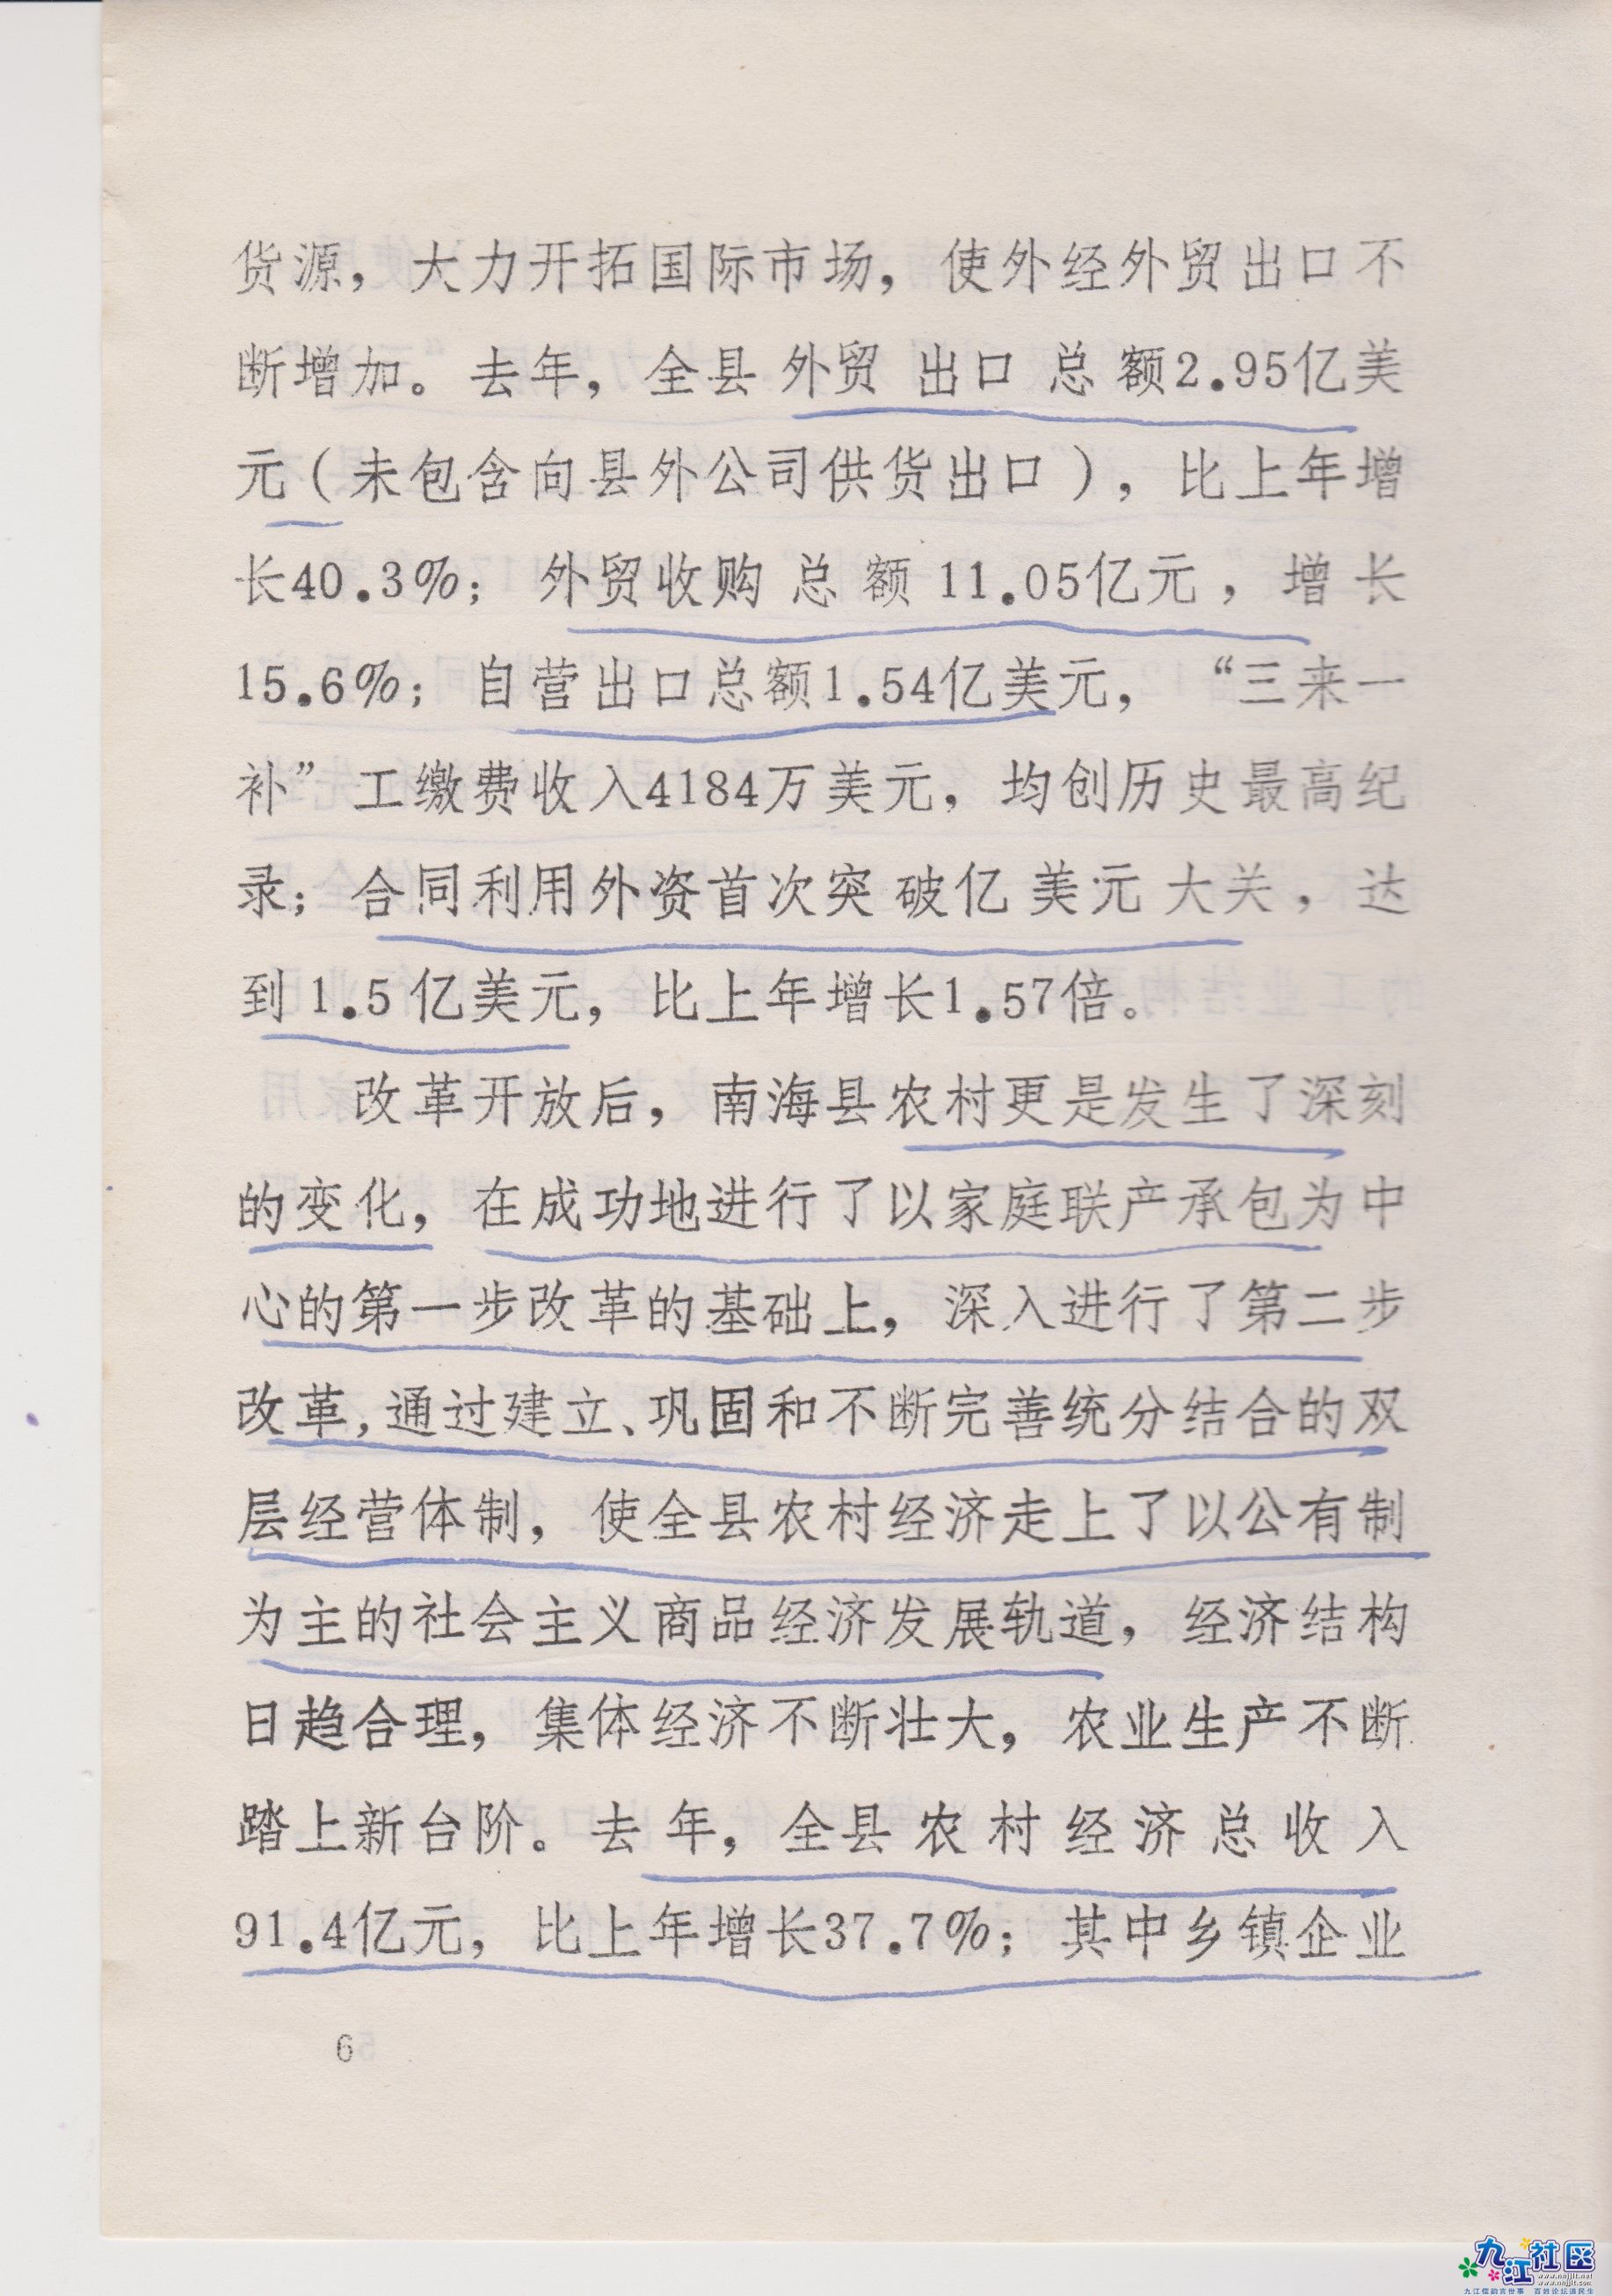 货源，大力开拓国际市场，使外经外贸出口不
断增加。去年，全县外贸出口总额2.95亿美
元（未包含向县外公司供货出口），比上年增
长40.3%；外贸收购总额11.05亿元，增长
15.6%；自营出口总额1.54亿美元，“三来一
补”工缴费收入4184万美元，均创历史最高纪
录；合同利用外资首次突破亿美元大关，达
到1.5亿美元，比上年增长1.57倍。
改革开放后，南海县农村更是发生了深刻
的变化，在成功地进行了以家庭联产承包为中
心的第一步改革的基础上，深入进行了第二步
改革，通过建立、巩固和不断完善统分结合的双
层经营体制，使全县农村经济走上了以公有制
为主的社会主义商品经济发展轨道，经济结构
日趋合理，集体经济不断壮大，农业生产不断
踏上新台阶。去年，全县农村经济总收入
91.4亿元，比上年增长37.7%；其中乡镇企业
6
九江社区